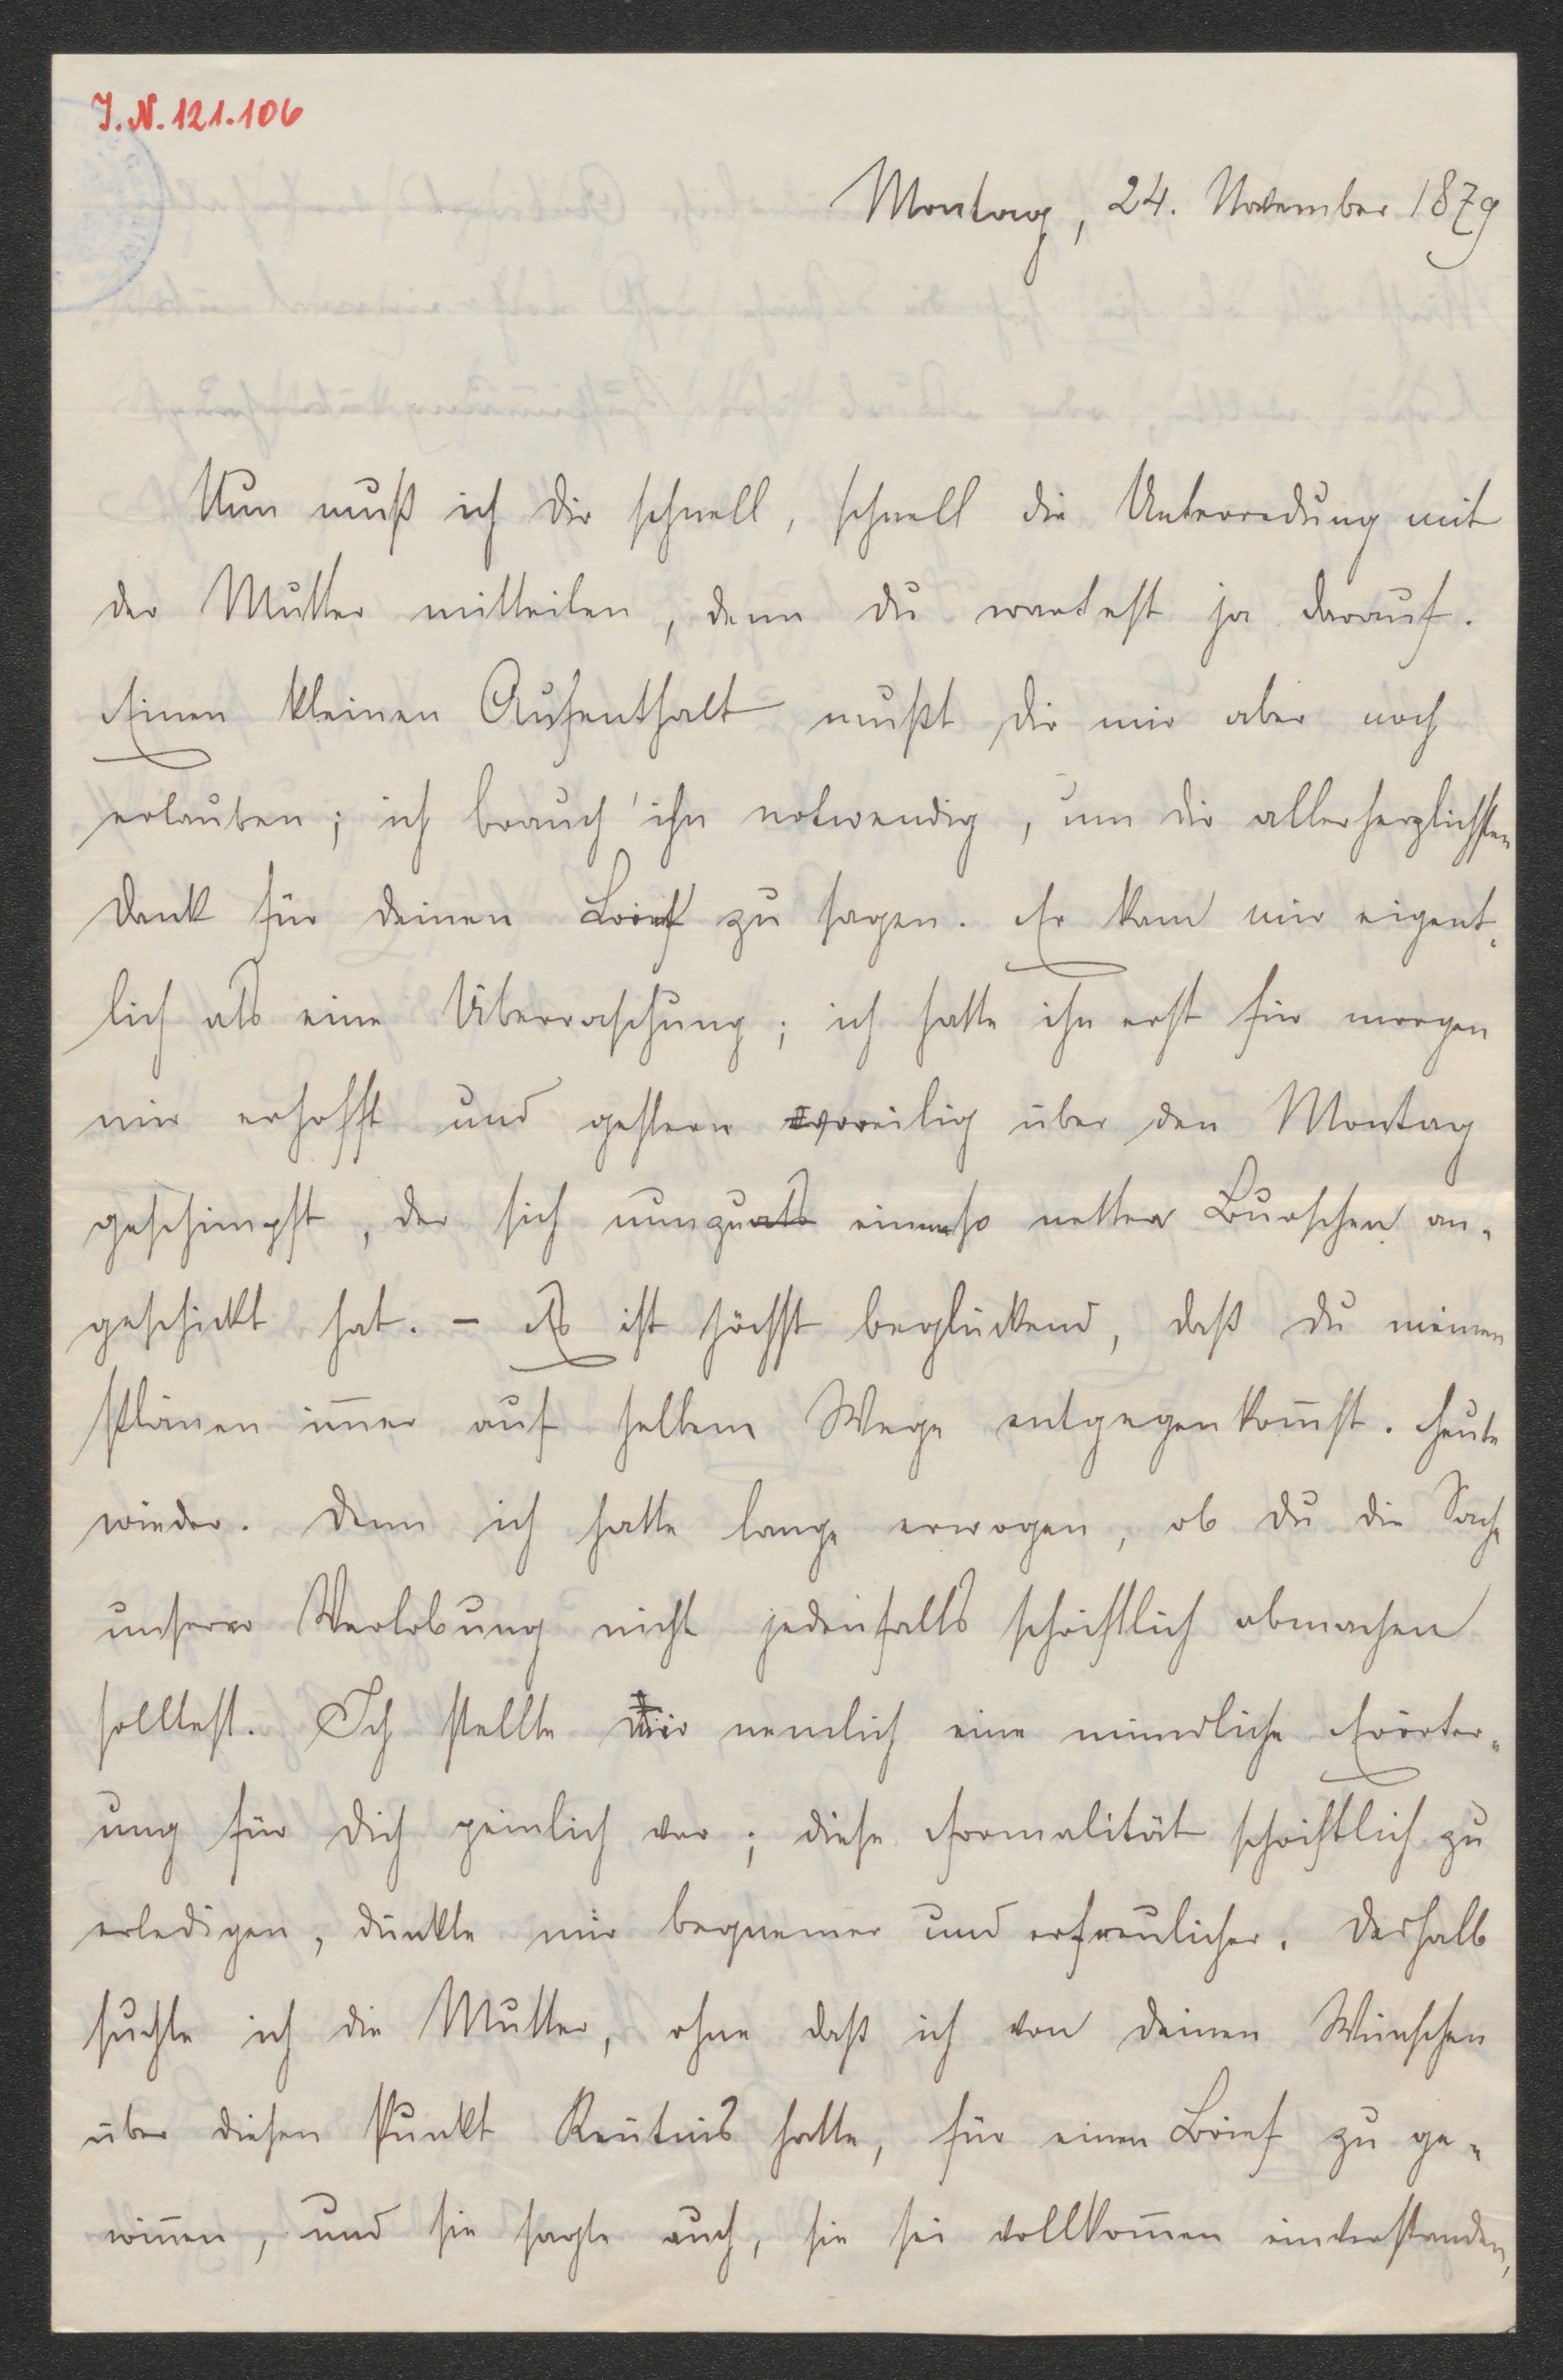 J. N. 121.106
Montag, 24. November 1879
Nun muß ich dir schnell, schnell die Unterredung mit
der Mutter mitteilen, denn du wartest ja darauf.
Einen kleinen Aufenthalt mußt du mir aber noch
erlauben; ich brauch' ihn notwendig, um dir allerherzlichsten
Dank für deinen Brief zu sagen. Er kam mir eigent-
lich als eine Überraschung; ich hatte ihn erst für morgen
mir erhofft und gestern voreilig über den Montag
geschimpft, der sich nun zu als einem so netten Burschen an-
geschickt hat. – Es ist höchst beglückend, daß du meinen
Plänen im̄er auf halbem Wege entgegenkom̄st. Heute
wieder. Denn ich hatte lange erwogen, ob du die Sache
unserer Verlobung nicht jedenfalls schriftlich abmachen
solltest. Ich stellte mir nemlich eine mündliche Erörter-
ung für dich peinlich vor; diese Formalität schriftlich zu
erledigen, dünkte mir bequemer und erfreulicher. Deshalb
suchte ich die Mutter, ohne daß ich von deinen Wünschen
über diesen Punkt Ken̄tnis hatte, für einen Brief zu ge-
win̄en, und sie sagte auch, sie sei vollkom̄en einverstanden,